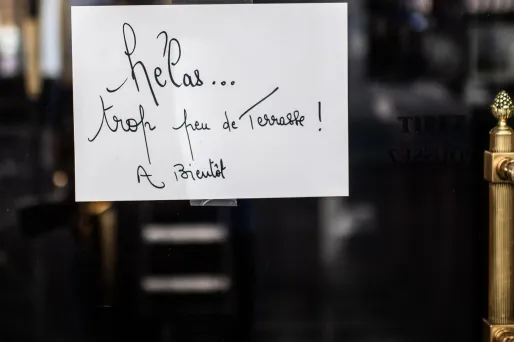 hélas...
trop peu de Terrasse !
A Bientôt